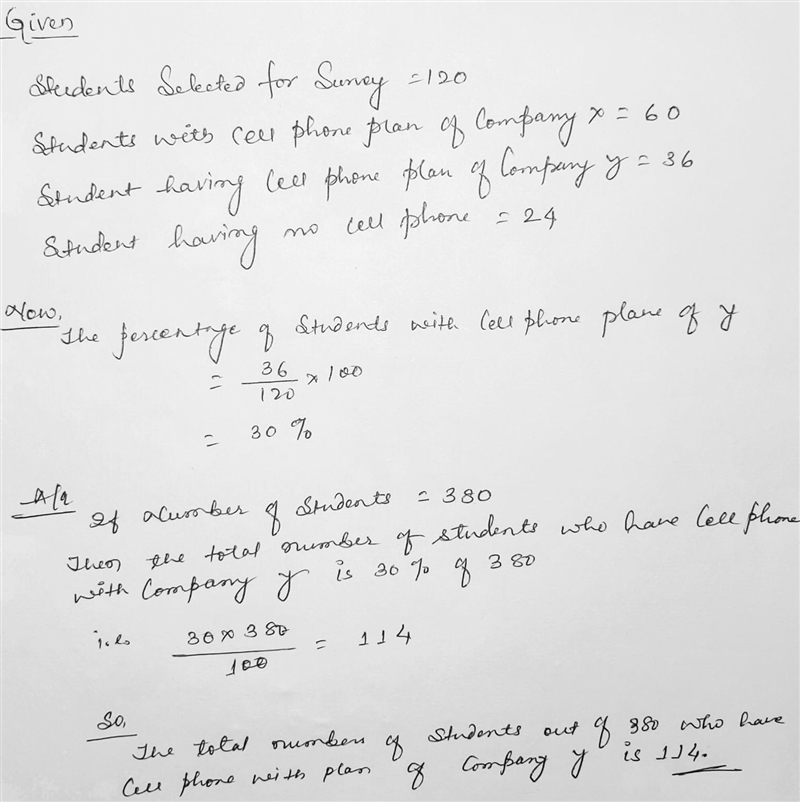 Given
Students Selected for Survey = 120
Students with cell phone plan of Company x = 60
Student having cell phone plan of Company y = 36
Student having no cell phone = 24
Now,
The percentage of Students with cell phone plane of y
= 36/120 × 100
= 30 %
A/q
If Number of Students = 380
Then the total number of students who have cell phone
with Company y is 30 % of 380
i.e. 30 × 380 / 100 = 114
So,
The total number of students out of 380 who have
cell phone with plan of Company y is 114.